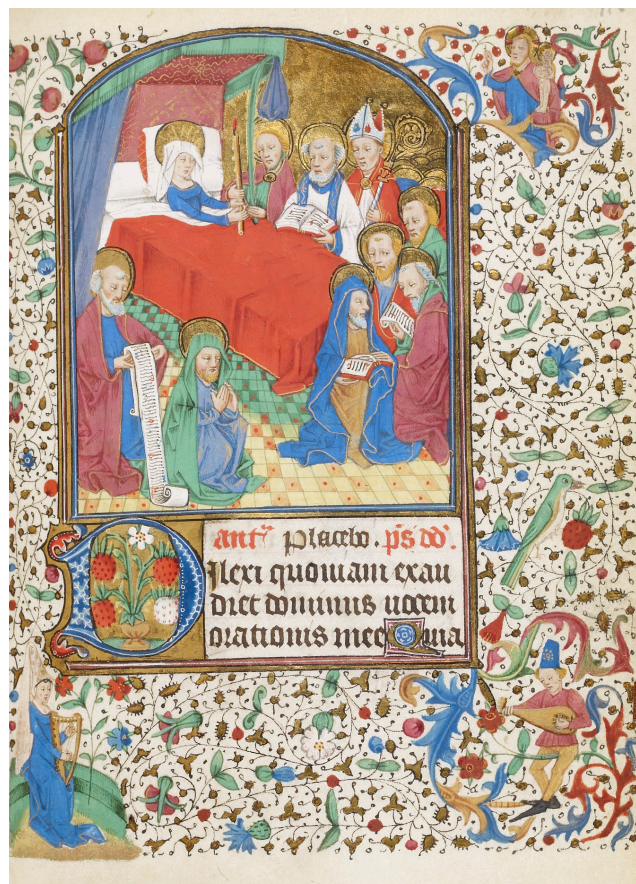 antᵃ placebo . p̃s dd̃.
Dilexi quoniam exau
diet dominus uocem
orationis mee Quia